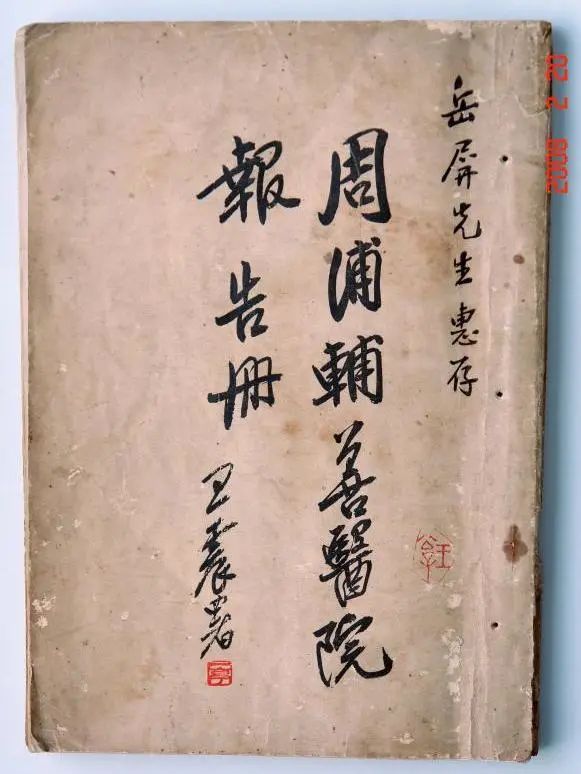 岳屏先生惠存
周浦輔善醫院
報告冊
王震署
2008 2 20